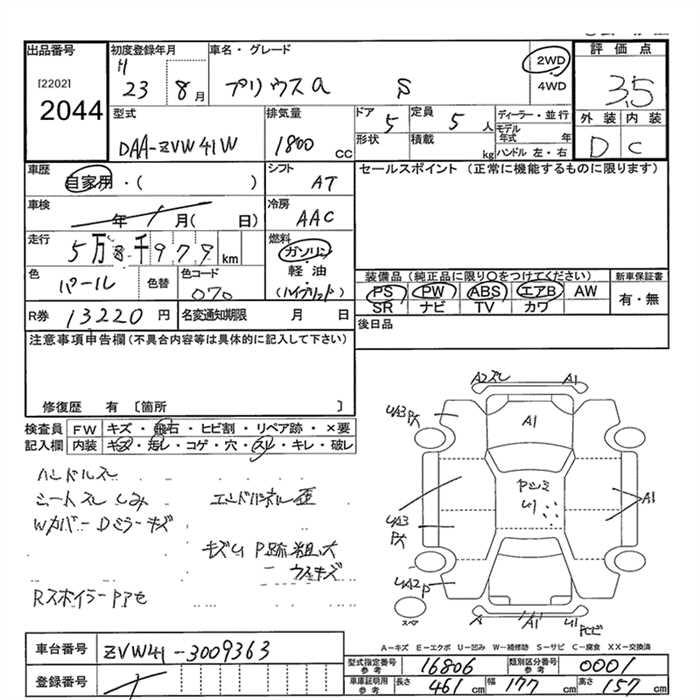 出品番号 初度登録年月 車名・グレード 評価点
[2202] H 2WD
2044 23 8月 プリウスα S 4WD 3.5
型式 排気量 ドア 定員 ディーラー・並行 外装 内装
DAA-ZVW41W 1800 CC 5 5 人 モデル年式 年 D C
形状 積載 kg ハンドル 左・右
車歴 自家用・( ) シフト AT セールスポイント (正常に機能するものに限ります)
車検 年 月( 日) 冷房 AAC
走行 5万8千979 km 燃料 ガソリン
軽・油
(ハイブリット)
色 パール 色替 色コード 070
装備品 (純正品に限り○をつけてください) 新車保証書
PS PW ABS エアB AW 有・無
SR ナビ TV カワ
R券 13220円 名変通知期限 月 日 後日品
注意事項申告欄(不具合内容等は具体的に記入して下さい)
修復歴 有 〔箇所 〕
検査員 FW キズ・飛石・ヒビ割・リペア跡・×要
記入欄 内装 キズ・汚レ・コゲ・穴・スレ・キレ・破レ
ハンドルスレ
シートスレ シミ エンドパネル歪
Wカバー Dミラーキズ
キズU P跡粗 大
ウスキズ
Rスポイラー Pアセ
A2スレ A1
UA3 PX A1
Pシミ
U1
A1
UA3
PX
UA2 P
スペア A A1 U1 Pセビ
A-キズ E-エクボ U-凹み W-補修跡 S-サビ C-腐食 XX-交換済
車台番号 ZVW41-3009363
型式指定番号 参考 16806 類別区分番号 参考 0001
登録番号
車庫証明用 参考 長さ 461cm 幅 177cm 高さ 157cm